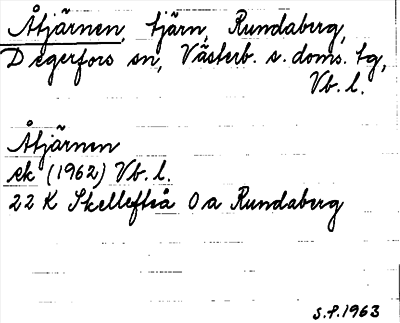 Åtjärnen, tjärn, Rundaberg,
Degerfors sn, Västerb. s. doms. tg,
Vb. l.
Åtjärnen
ek (1962) Vb. l.
22 K Skellefteå 0a Rundaberg
S.P. 1963